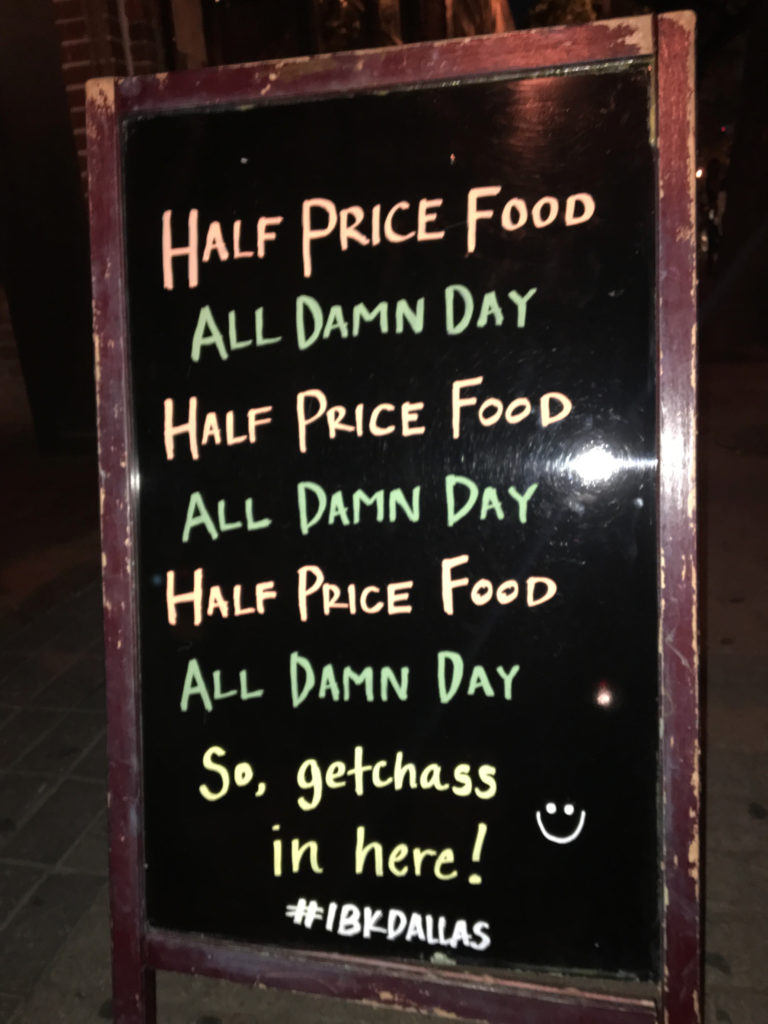 HALF PRICE FOOD
ALL DAMN DAY
HALF PRICE FOOD
ALL DAMN DAY
HALF PRICE FOOD
ALL DAMN DAY
So, getchass
in here!
#IBKDALLAS